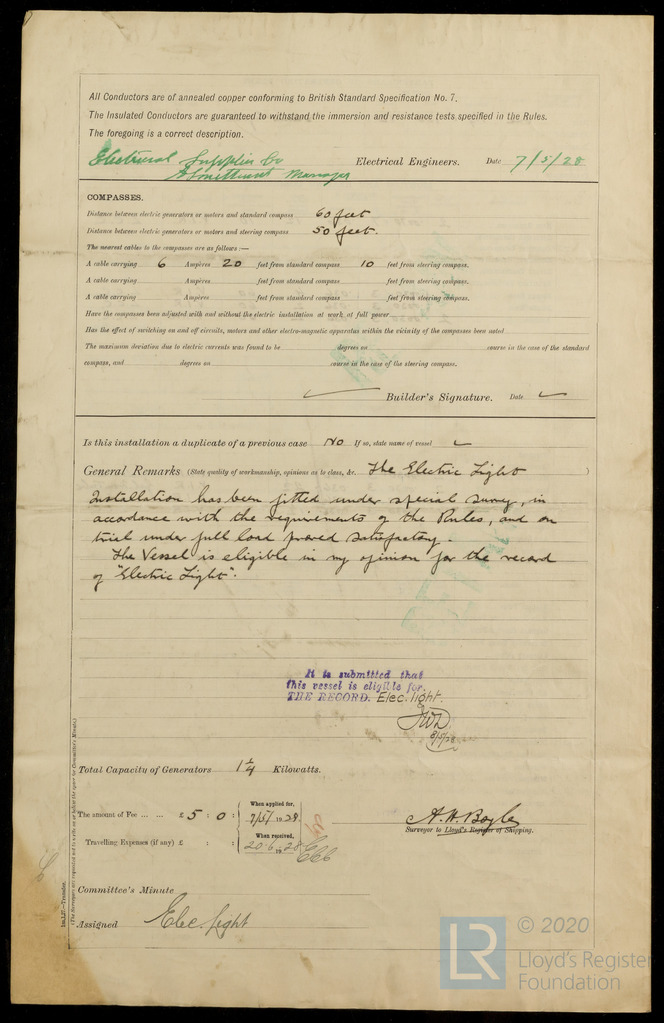 All Conductors are of annealed copper conforming to British Standard Specification No. 7.
The Insulated Conductors are guaranteed to withstand the immersion and resistance tests specified in the Rules.
The foregoing is a correct description.
Electrical Supplies Co Electrical Engineers. Date 7/5/28
Manager
COMPASSES.
Distance between electric generators or motors and standard compass 60 feet
Distance between electric generators or motors and steering compass 50 feet.
The nearest cables to the compasses are as follows:—
A cable carrying 6 Ampères 20 feet from standard compass 10 feet from steering compass.
A cable carrying Ampères feet from standard compass feet from steering compass.
A cable carrying Ampères feet from standard compass feet from steering compass.
Have the compasses been adjusted with and without the electric installation at work at full power
Has the effect of switching on and off circuits, motors and other electro-magnetic apparatus within the vicinity of the compasses been noted
The maximum deviation due to electric currents was found to be degrees on course in the case of the standard
compass, and degrees on course in the case of the steering compass.
Builder's Signature. Date
Is this installation a duplicate of a previous case No If so, state name of vessel
General Remarks (State quality of workmanship, opinions as to class, &c. The Electric Light )
Installation has been fitted under special survey, in
accordance with the requirements of the Rules, and on
trial under full load proved satisfactory.
The Vessel is eligible in my opinion for the record
of "Electric Light".
It is submitted that
this vessel is eligible for
THE RECORD. Elec. light.
8/5/28
Total Capacity of Generators 1 1/4 Kilowatts.
The amount of Fee ... ... £ 5 : 0 : When applied for, 7/5/1928.
A. H. Boyle
Surveyor to Lloyd's Register of Shipping.
Travelling Expenses (if any) £ : : When received, 20.6.1928
Committee's Minute
Assigned Elec. light
(The Surveyors are requested not to write on or below the space for Committee's Minute.)
© 2020
LR Lloyd's Register
Foundation